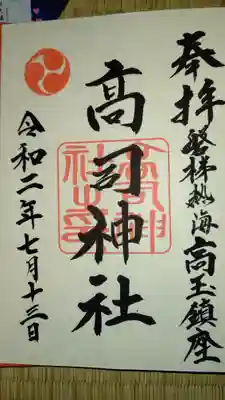 奉拝 磐梯熱海高玉鎮座
高司神社
令和二年七月十三日